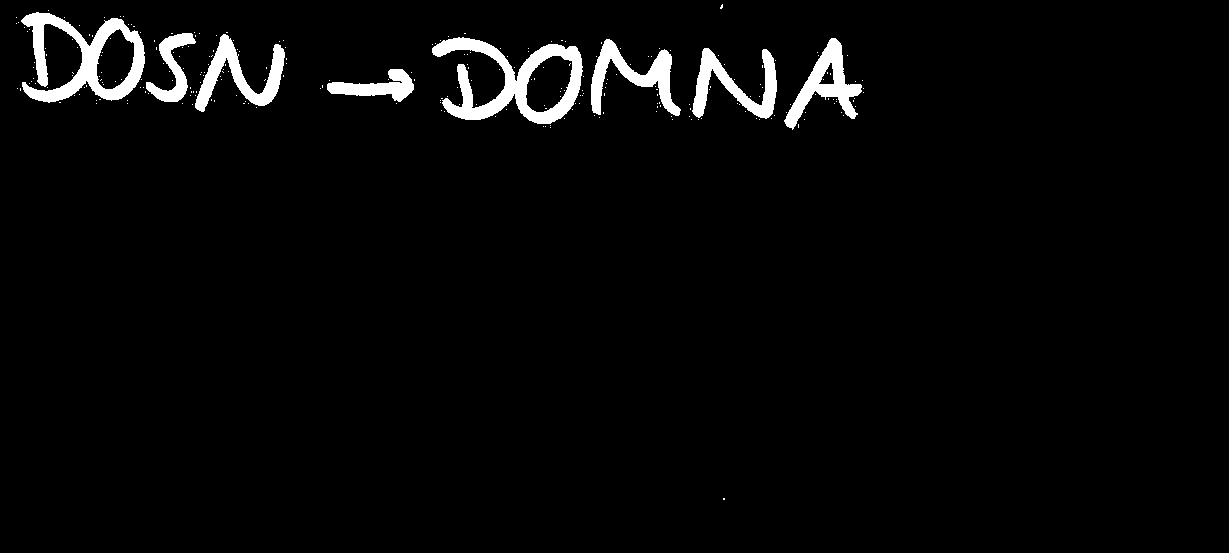 DOSN → DOMNA